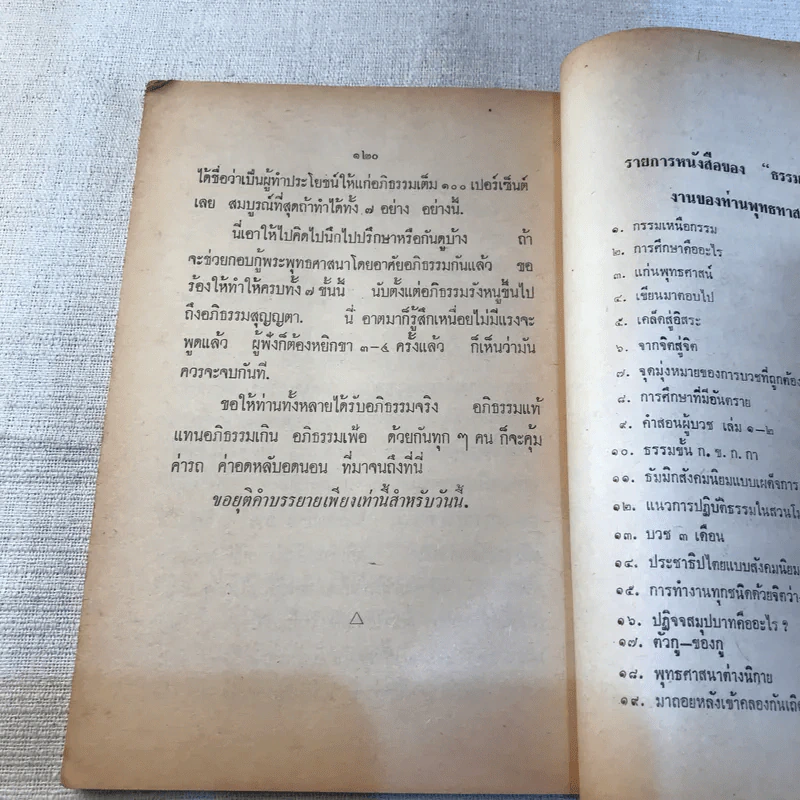 ๑๒๐
ได้ชื่อว่าเป็นผู้ทำประโยชน์ให้แก่อภิธรรมเต็ม ๑๐๐ เปอร์เซ็นต์
เลย สมบูรณ์ที่สุดถ้าทำได้ทั้ง ๗ อย่าง อย่างนี้.
นี่เอาให้ไปคิดไปนึกไปปรึกษาหรือกันดูบ้าง ถ้า
จะช่วยกอบกู้พระพุทธศาสนาโดยอาศัยอภิธรรมกันแล้ว ขอ
ร้องให้ทำให้ครบทั้ง ๗ ชั้นนี้ นับตั้งแต่อภิธรรมรังหนูขึ้นไป
ถึงอภิธรรมสุญญตา. นี่ อาตมาก็รู้สึกเหนื่อยไม่มีแรงจะ
พูดแล้ว ผู้ฟังก็ต้องหยิกขา ๓-๔ ครั้งแล้ว ก็เห็นว่ามัน
ควรจะจบกันที.
ขอให้ท่านทั้งหลายได้รับอภิธรรมจริง อภิธรรมแท้
แทนอภิธรรมเกิน อภิธรรมเฟ้อ ด้วยกันทุก ๆ คน ก็จะคุ้ม
ค่ารถ ค่าอดหลับอดนอน ที่มาจนถึงที่นี่
ขอยุติคำบรรยายเพียงเท่านี้สำหรับวันนี้.
รายการหนังสือของ “ธรรม
งานของท่านพุทธทาส
๑. กรรมเหนือกรรม
๒. การศึกษาคืออะไร
๓. แก่นพุทธศาสน์
๔. เขียนมาตอบไป
๕. เคล็ดสู่อิสระ
๖. จากจิตสู่จิต
๗. จุดมุ่งหมายของการบวชที่ถูกต้อง
๘. การศึกษาที่มีอันตราย
๙. คำสอนผู้บวช เล่ม ๑-๒
๑๐. ธรรมขั้น ก. ข. ก. กา
๑๑. ธัมมิกสังคมนิยมแบบเผด็จการ
๑๒. แนวการปฏิบัติธรรมในสวนโม
๑๓. บวช ๓ เดือน
๑๔. ประชาธิปไตยแบบสังคมนิยม
๑๕. การทำงานทุกชนิดด้วยจิตว่า
๑๖. ปฏิจจสมุปบาทคืออะไร ?
๑๗. ตัวกู-ของกู
๑๘. พุทธศาสนาต่างนิกาย
๑๙. มาถอยหลังเข้าคลองกันเถิ